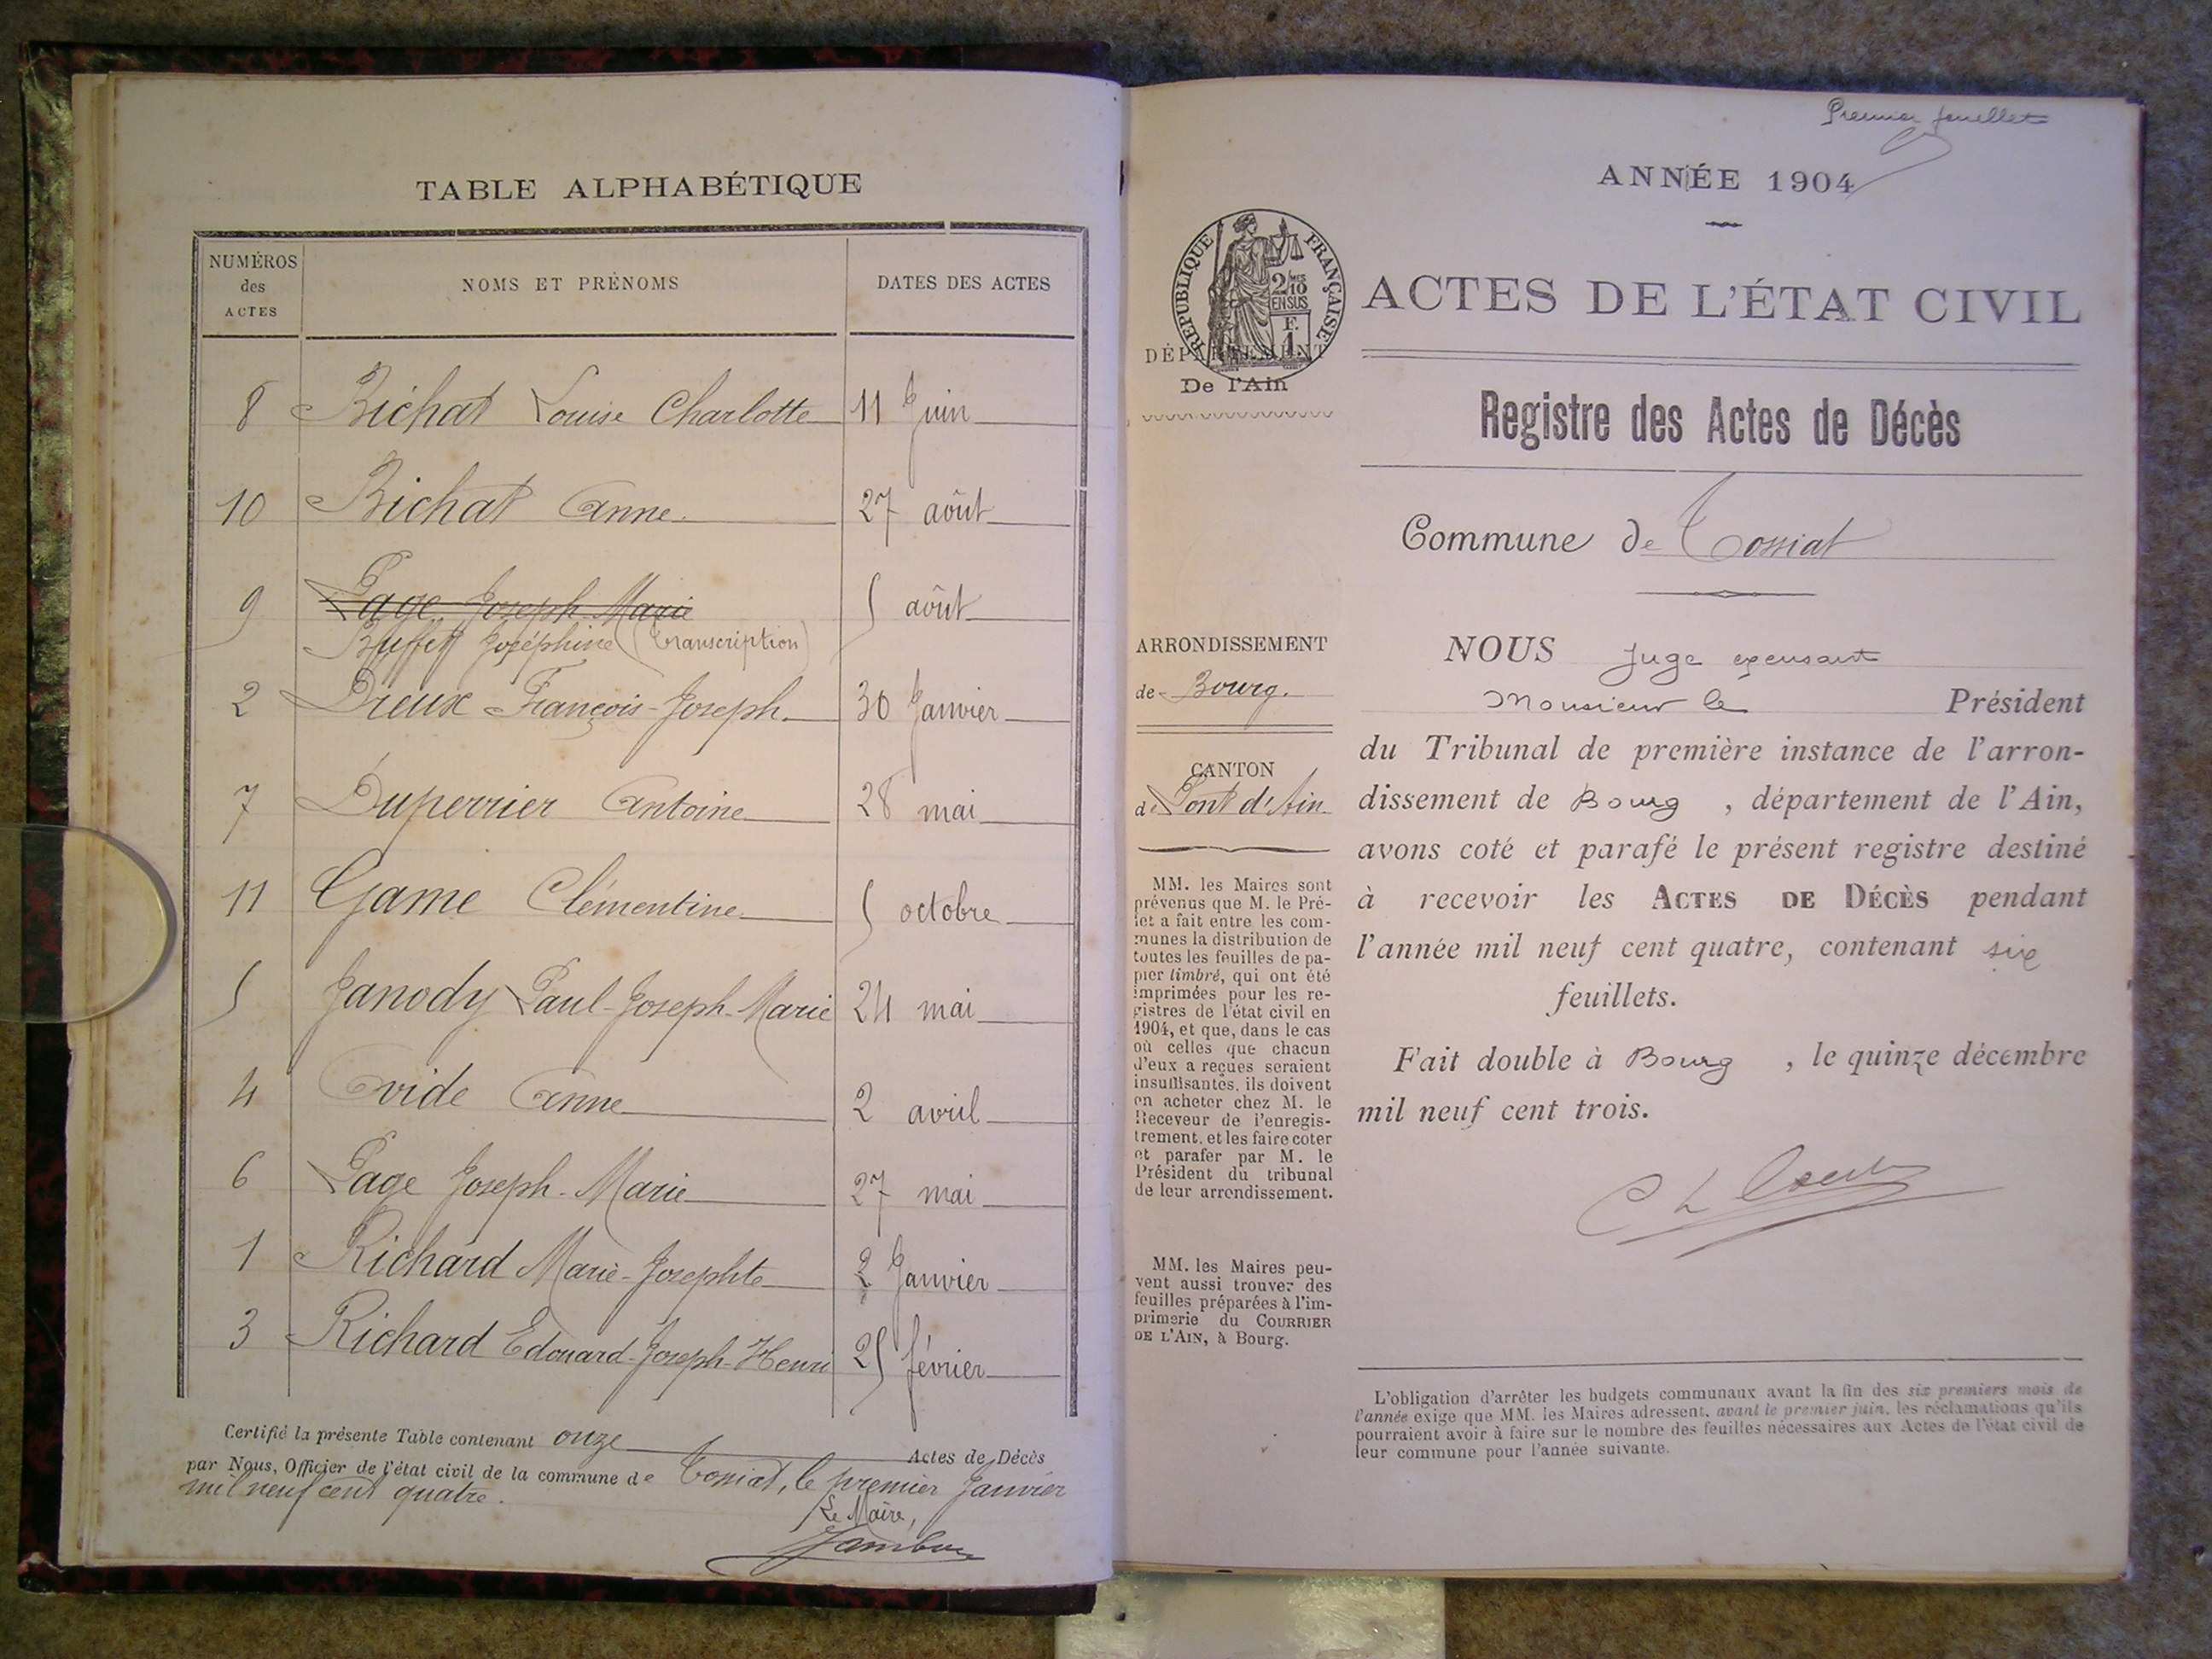 TABLE ALPHABÉTIQUE
NUMÉROS des ACTES NOMS ET PRÉNOMS DATES DES ACTES
8 Bichat Louise Charlotte 11 Juin
10 Bichat Anne 27 août
9 Page Joseph Marie 5 août
Buffet Joséphine (transcription)
2 Dreux François-Joseph 30 Janvier
7 Duperrier Antoine 28 mai
11 Game Clémentine 5 octobre
5 Janody Paul-Joseph-Marie 24 mai
4 Ovide Anne 2 avril
6 Page Joseph-Marie 27 mai
1 Richard Marie-Josephte 2 Janvier
3 Richard Edouard-Joseph-Henri 25 février
Certifié la présente Table contenant onze Actes de Décès
par Nous, Officier de l'état civil de la commune de Tossiat, le premier Janvier
mil neuf cent quatre.
Le Maire,
Premier feuillet
ANNÉE 1904
RÉPUBLIQUE FRANÇAISE
2/10 MES
EN SUS
F.
1
DÉPARTEMENT
De l'Ain
ACTES DE L'ÉTAT CIVIL
Registre des Actes de Décès
Commune de Tossiat
ARRONDISSEMENT
de Bourg.
CANTON
de Pont d'Ain
MM. les Maires sont
prévenus que M. le Pré-
fet a fait entre les com-
munes la distribution de
toutes les feuilles de pa-
pier timbré, qui ont été
imprimées pour les re-
gistres de l'état civil en
1904, et que, dans le cas
où celles que chacun
d'eux a reçues seraient
insuffisantes, ils doivent
en acheter chez M. le
Receveur de l'enregis-
trement, et les faire coter
et parafer par M. le
Président du tribunal
de leur arrondissement.
MM. les Maires peu-
vent aussi trouver des
feuilles préparées à l'im-
primerie du COURRIER
DE L'AIN, à Bourg.
NOUS Juge excusant
Monsieur le Président
du Tribunal de première instance de l'arron-
dissement de Bourg , département de l'Ain,
avons coté et parafé le présent registre destiné
à recevoir les ACTES DE DÉCÈS pendant
l'année mil neuf cent quatre, contenant six
feuillets.
Fait double à Bourg , le quinze décembre
mil neuf cent trois.
L'obligation d'arrêter les budgets communaux avant la fin des six premiers mois de
l'année exige que MM. les Maires adressent, avant le premier juin, les réclamations qu'ils
pourraient avoir à faire sur le nombre des feuilles nécessaires aux Actes de l'état civil de
leur commune pour l'année suivante.